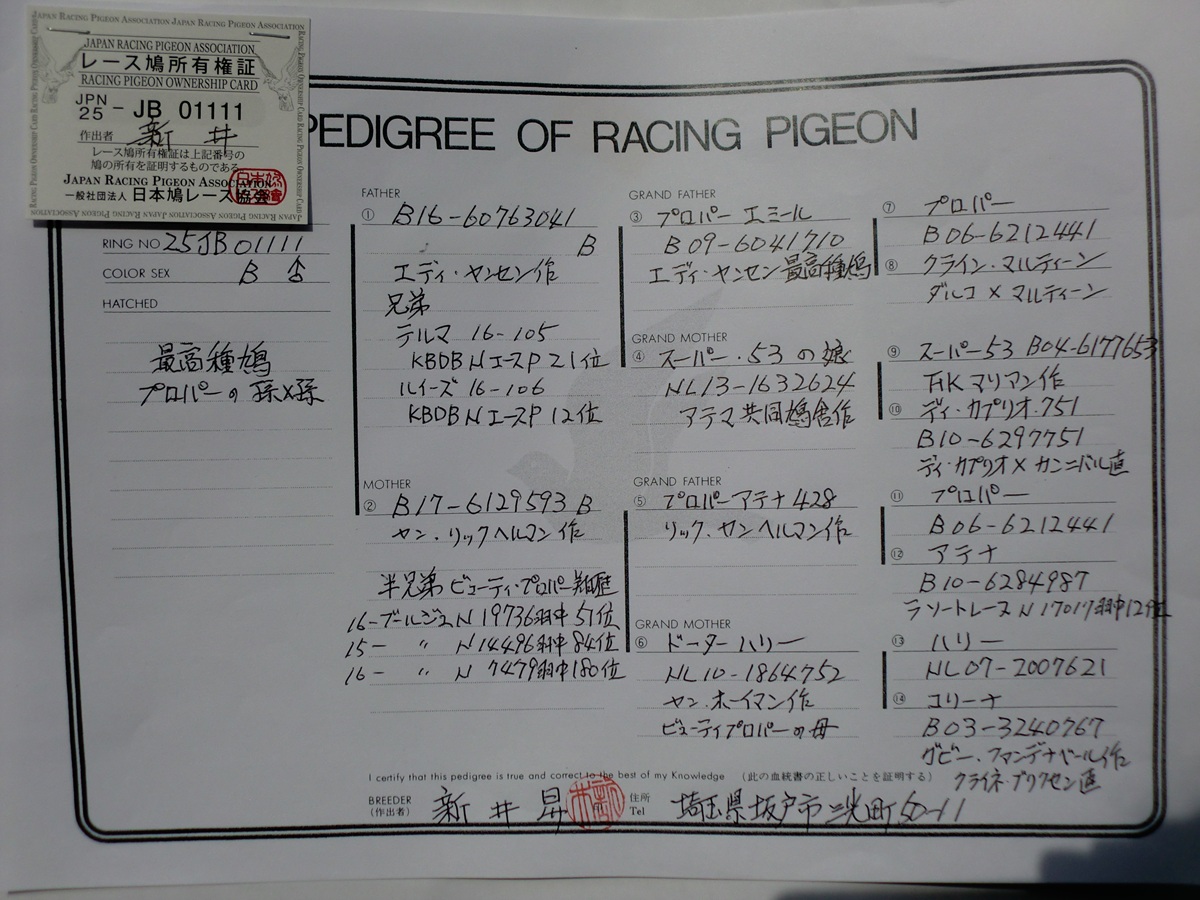 JAPAN RACING PIGEON ASSOCIATION JAPAN RACING PIGEON ASSOCIATION
JAPAN RACING PIGEON ASSOCIATION
レース鳩所有権証
RACING PIGEON OWNERSHIP CARD
JPN 25 - JB 01111
作出者 新井
レース鳩所有権証は上記番号の
鳩の所有を証明するものである
JAPAN RACING PIGEON ASSOCIATION
一般社団法人 日本鳩レース協会
PEDIGREE OF RACING PIGEON
RING NO 25JB01111
COLOR SEX B ♂
HATCHED
最高種鳩
プロパーの孫×孫
FATHER
① B16-60763041
B
エディ・ヤンセン作
兄弟
テルマ 16-105
KBDB NエースP 21位
ルイーズ 16-106
KBDB NエースP 12位
MOTHER
② B17-6129593 B
ヤン・リックヘルマン作
半兄弟 ビューティ・プロパー
16-ブールジュN 19736羽中51位
15- 〃 N 14496羽中84位
16- 〃 N 7479羽中180位
GRAND FATHER
③ プロパー エミール
B09-6041710
エディ・ヤンセン最高種鳩
GRAND MOTHER
④ スーパー・53の娘
NL13-1632624
アテマ共同鳩舎作
GRAND FATHER
⑤ プロパーアテナ428
リック・ヤンヘルマン作
GRAND MOTHER
⑥ ドーターハリー
NL10-1864752
ヤン・ホーイマン作
ビューティプロパーの母
⑦ プロパー
B06-6212441
⑧ クライン・マルティーン
ダルコ×マルティーン
⑨ スーパー53 B04-6177653
マリマン作
⑩ ディ・カプリオ・751
B10-6297751
ディ・カプリオ×カンニバル直
⑪ プロパー
B06-6212441
⑫ アテナ
B10-6284987
ラソートレースN 17017羽中129位
⑬ ハリー
NL07-2007621
⑭ コリーナ
B03-3240767
グビー・ファンデナベール作
クライネ・ブリクセン直
I certify that this pedigree is true and correct to the best of my Knowledge (此の血統書の正しいことを証明する)
BREEDER (作出者) 新井昇 住所 Tel 埼玉県坂戸市三光町50-11